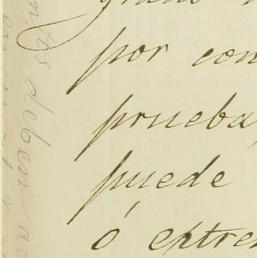 por con
prueba,
puede
ó extre
ntos deben a